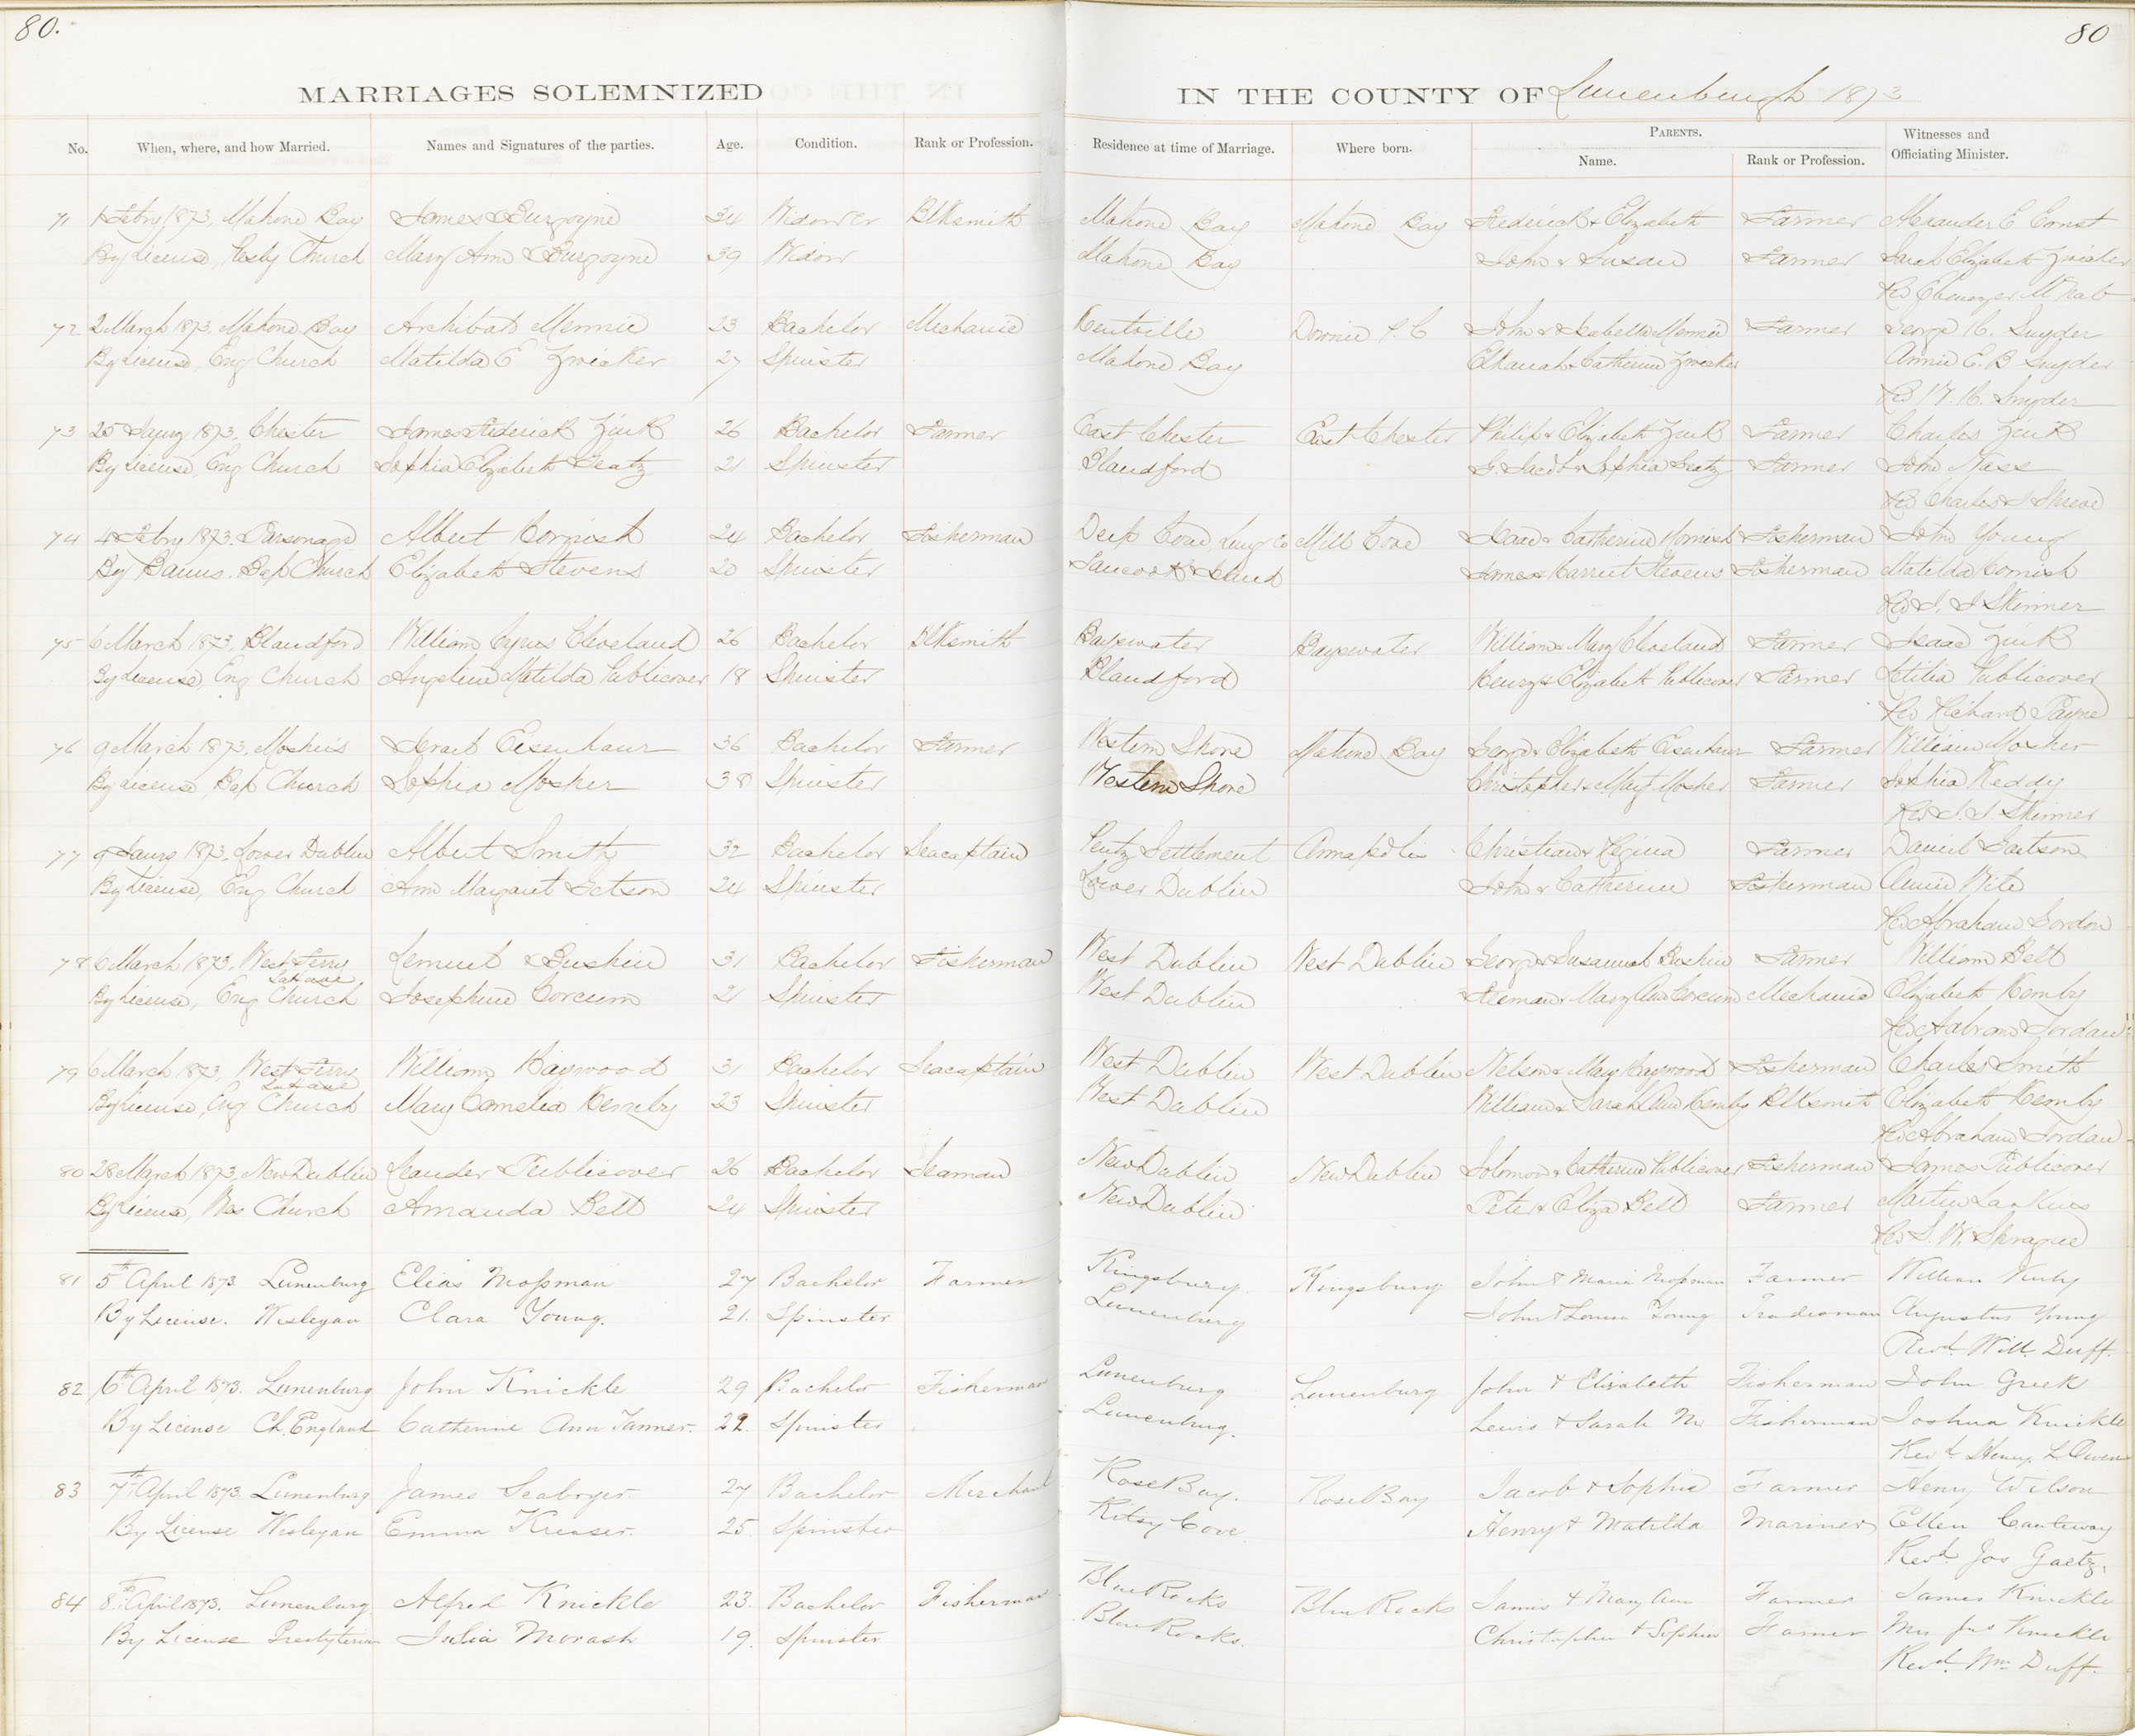 80.
80
MARRIAGES SOLEMNIZED IN THE COUNTY OF Lunenburgh 1873
No. When, where, and how Married. Names and Signatures of the parties. Age. Condition. Rank or Profession. Residence at time of Marriage. Where born. PARENTS. Name. Rank or Profession. Witnesses and Officiating Minister.
71 1 Febry 1873, Mahone Bay James Burgoyne 34 Widower Blksmith Mahone Bay Mahone Bay Frederick & Elizabeth Farmer Alexander E Ernst
By License, Presby Church Mary Ann Burgoyne 39 Widow Mahone Bay John & Susan Farmer Sarah Elizabeth Zwicker
Rev Ebenezer McNab
72 2 March 1873, Mahone Bay Archibald Mennie 23 Bachelor Mechanic Kentville Downie John & Isabella Mennie Farmer George H. Snyder
By License, Eng Church Matilda E Zwicker 27 Spinster Mahone Bay Elkanah & Catherine Zwicker Annie E. B Snyder
Rev W. H. Snyder
73 25 Jauny 1873, Chester James Frederick Zink 26 Bachelor Farmer East Chester East Chester Philip & Elizabeth Zink Farmer Charles Zink
By License, Eng Church Sophia Elizabeth Seatz 21 Spinster Blandford G. Jacob & Sophia Seatz Farmer John Nass
Rev Charles J Shreve
74 4 Febry 1873. Parsonage Albert Cornish 24 Bachelor Fisherman Deep Cove, Lung Co Mill Cove Isaac & Catherine Cornish Fisherman John Young
By Banns. Bap Church Elizabeth Stevens 20 Spinster Tancook Island James & Harriet Stevens Fisherman Matilda Cornish
Rev I. J Skinner
75 6 March 1873, Blandford William Cyrus Cleveland 26 Bachelor Blksmith Bayswater Bayswater William & Mary Cleveland Farmer Isaac Zink
By License, Eng Church Angeline Matilda Publicover 18 Spinster Blandford Henry & Elizabeth Publicover Farmer Letitia Publicover
Rev Richard Payne
76 9 March 1873, Moshers Israel Eisenhaur 36 Bachelor Farmer Western Shore Mahone Bay George & Elizabeth Eisenhaur Farmer William Mosher
By License, Bap Church Sophia Mosher 38 Spinster Western Shore Christopher & Mary Mosher Farmer Sophia Keddy
Rev I. J. Skinner
77 9 Jauny 1873, Lower Dublin Albert Smith 32 Bachelor Seacaptain Pentz Settlement Annapolis Christian & Regina Farmer Daniel Getson
By License, Eng Church Ann Margaret Getson 24 Spinster Lower Dublin John & Catherine Fisherman Annie Wile
Rev Abraham Jordon
78 6 March 1873, West Ferry Lemuel Buskin 31 Bachelor Fisherman West Dublin West Dublin George & Susannah Buskin Farmer William Bell
LaHave
By License, Eng Church Josephine Corcum 21 Spinster West Dublin & Mary Ann Corcum Mechanic Elizabeth Hemby
Rev Abram Jordan
79 6 March 1873, West Ferry William Haywood 31 Bachelor Seacaptain West Dublin West Dublin Nelson & Mary Haywood Fisherman Charles Smith
LaHave
By License, Eng Church Mary Cornelia Hemby 23 Spinster West Dublin William & Sarah Ann Hemby Blksmith Elizabeth Hemby
Rev Abraham Jordan
80 28 March 1873, New Dublin Leander Publicover 26 Bachelor Seaman New Dublin New Dublin Solomon & Catherine Publicover Fisherman James Publicover
By License, Wes Church Amanda Bell 24 Spinster New Dublin Peter & Eliza Bell Farmer Martin
Rev S. W. Sprague
81 5th April 1873 Lunenburg Elias Mossman 27 Bachelor Farmer Kingsbury Kingsbury John & Maria Mossman Farmer William
By License. Wesleyan Clara Young. 21. Spinster Lunenburg John & Louisa Young Tradesman Augustus Young
Revd. Will. Duff.
82 6th April 1873. Lunenburg John Knickle 29 Bachelor Fisherman Lunenburg Lunenburg John & Elizabeth Fisherman John Greek
By License Ch. England Catherine Ann Tanner. 22. Spinster Lunenburg. Lewis & Sarah M. Fisherman Joshua Knickle
Revd. Henry L Owen
83 7th April 1873. Lunenburg James Seaboyer. 27 Bachelor Merchant Rose Bay. Rose Bay Jacob & Sophia Farmer Henry Wilson
By License Wesleyan Emma Kreaser. 25. Spinster Ritsy Cove Henry & Matilda Mariner Ellen
Revd. Jos Gaetz.
84 8th April 1873. Lunenburg Alfred Knickle 23. Bachelor Fisherman Blue Rocks Blue Rocks James & Mary Ann Farmer James Knickle
By License Presbyterian Julia Morash 19. Spinster Blue Rocks. Christopher & Sophia Farmer Mrs Jas Knickle
Revd. Wm Duff.